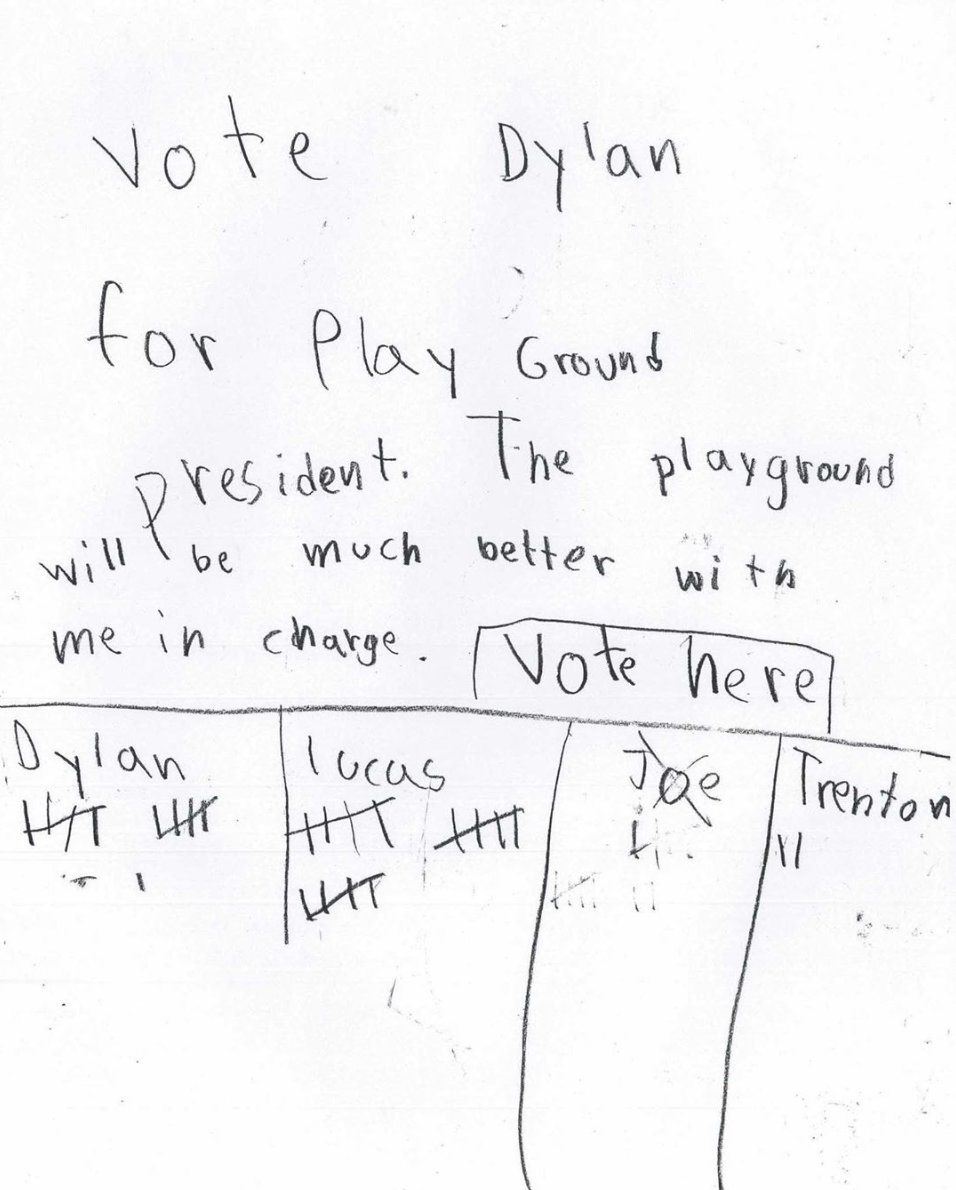 Vote Dylan
for Play Ground
president. The playground
will be much better with
me in charge.
Vote here
Dylan
lucas
Joe
Trenton